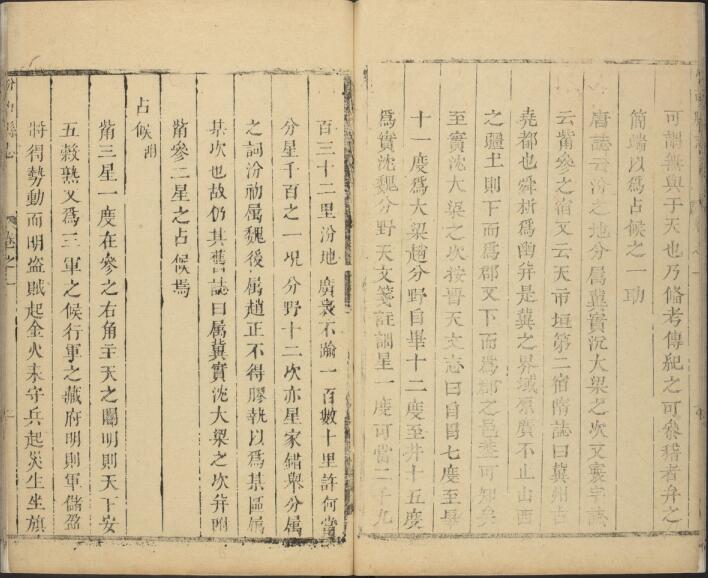 可謂無與于天也乃備考傳紀之可參稽者弁之
簡端以爲占候之一助
唐誌云汾之地分屬冀實沉大梁之次又寰宇誌
云觜參之宿又云天市垣第二宿隋誌曰冀州古
堯都也舜析爲幽并是冀之界域原廣不止山西
之疆土則下而爲郡又下而爲郡之邑
可知矣
至實沈大梁之次按晉天文志曰自胃七度至畢
十一度爲大梁趙分野自畢十二度至井十五度
爲實沈魏分野天文箋註謂星一度可當二千九
百三十二里汾地廣袤不踰一百數十里許何當
分星千百之一況分野十二次亦星家錯舉分屬
之詞汾初屬魏後屬趙正不得膠執以爲某區屬
某次也故仍其舊誌曰屬冀實沈大梁之次并附
觜參二星之占候焉
占候附
觜三星一度在參之右角主天之關明則天下安
五穀熟又爲三軍之候行軍之藏府明則軍儲盈
將得勢動而明盜賊起金火來守兵起災生坐旗